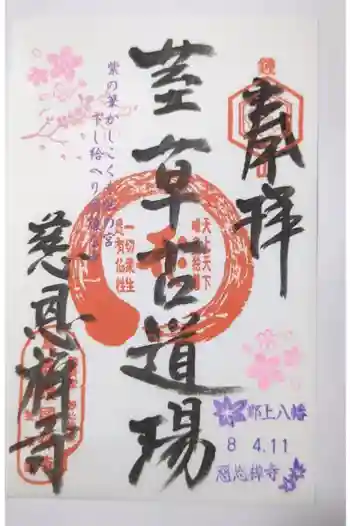 奉拝
荎草古道場
慈恩禅寺
紫の筆かしこくも
下し給へり
天上天下
唯我独尊
一切衆生
悉有仏性
郡上八幡
8 4.11
慈恩禅寺